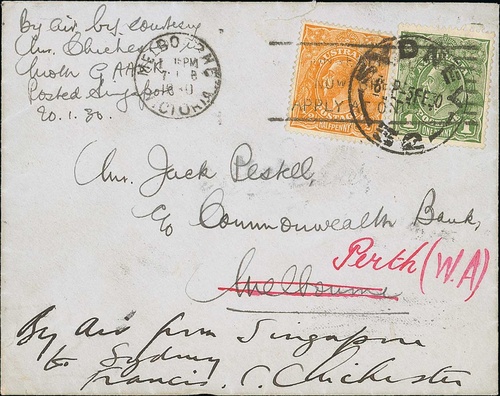 By air by courtesy
Mr. Chichester
Moth G AAKK
Posted Singapore
20.1.30.
MELBOURNE
VICTORIA
SYDNEY
POSTAGE
HALFPENNY
APPLY
1
ONE
Mr. Jack Pestell,
c/o Commonwealth Bank,
Melbourne
Perth (W.A)
By Air from Singapore
to Sydney
Francis. C. Chichester